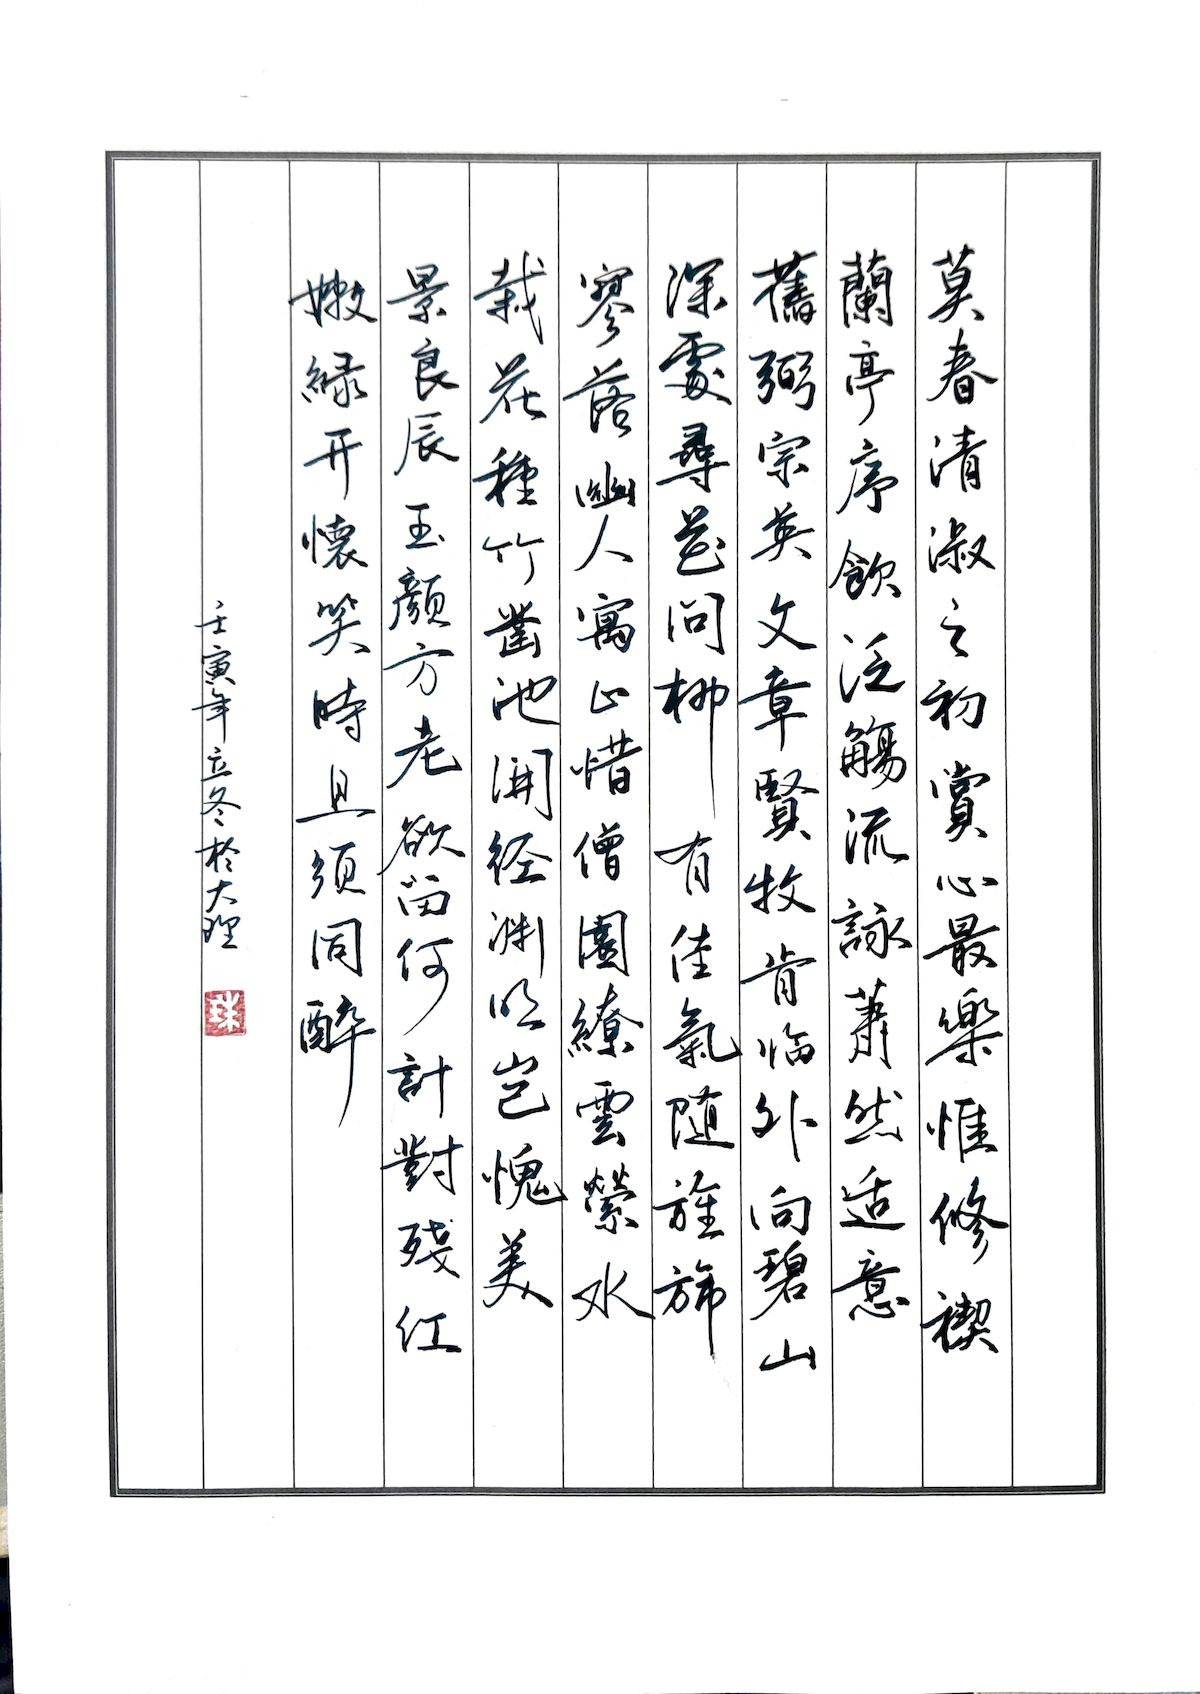 莫春清淑之初賞心最樂惟修禊
蘭亭序飲泛觴流詠蕭然适意
舊弼宗英文章賢牧肯临外向碧山
深處尋芲问柳有佳氣随旌斾
寥落幽人寓止惜僧園繚雲縈水
栽花種竹凿池開径渊明岂愧美
景良辰玉顏方老欲留何計對殘红
嫩緑开懷笑時且须同醉
壬寅年立冬於大理
珠